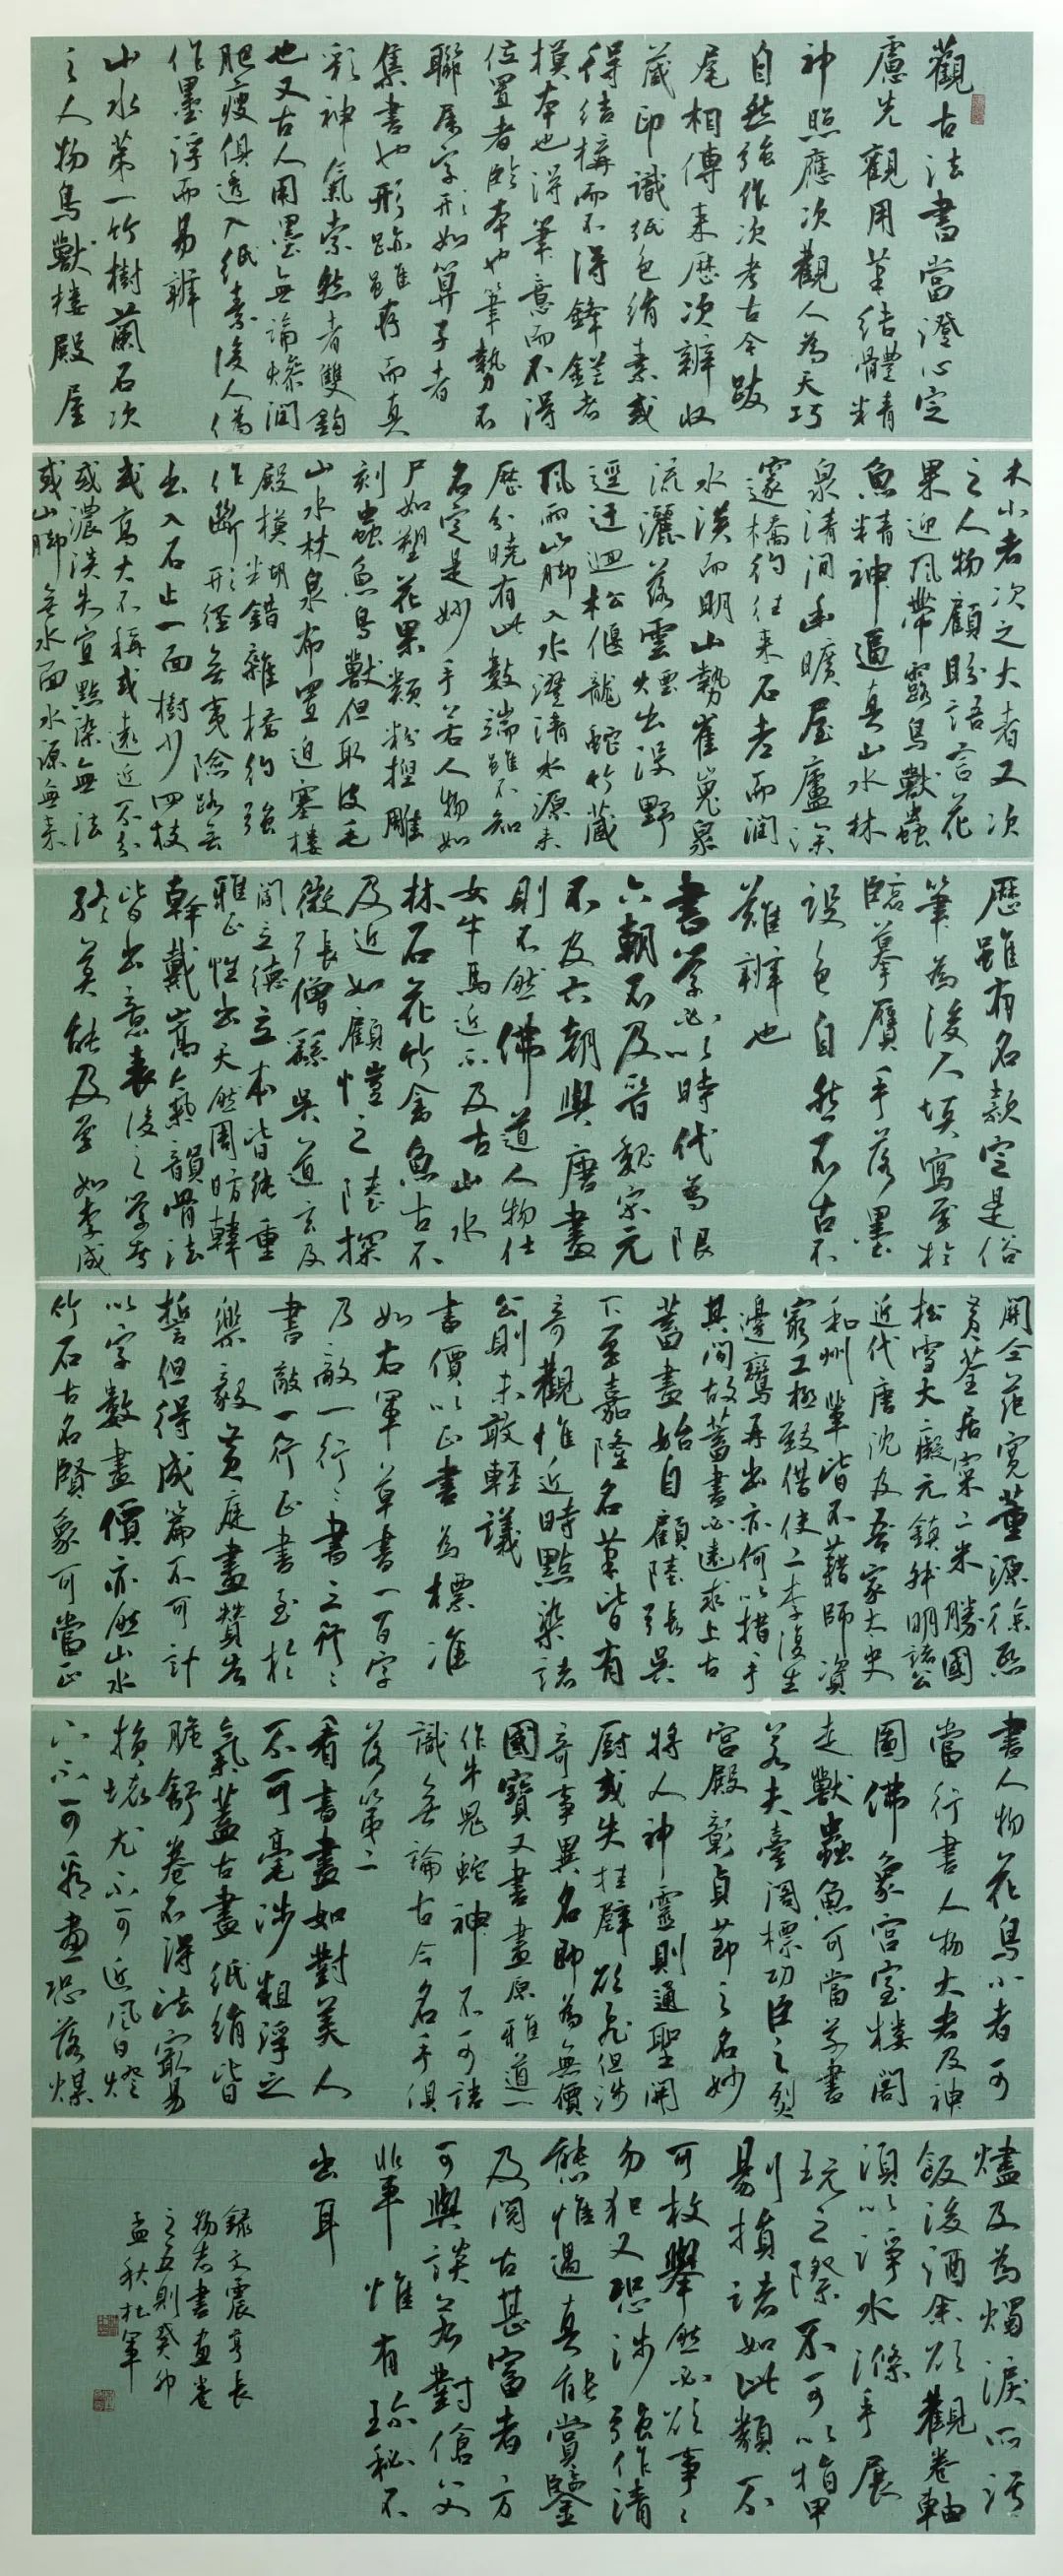 觀古法書當澄心定
慮先觀用筆結體精
神照應次觀人為天巧
自然強作次考古今跋
尾相傳来歷次辨收
藏印識紙色絹素或
得結構而不得鋒鋩者
模本也得筆意而不得
位置者臨本也筆勢不
聯屬字形如算子者
集書也形跡雖存而真
彩神氣索然者雙鉤
也又古人用墨無論燥潤
肥瘦俱透入紙素後人偽
作墨浮而易辨
山水第一竹樹蘭石次
之人物鳥獸樓殿屋
木小者次之大者又次
之人物顧盼語言花
果迎風帶露鳥獸蟲
魚精神逼真山水林
泉清閒幽曠屋廬深
邃橋彴往来石老而潤
水淡而明山勢崔嵬泉
流灑落雲煙出沒野
逕迂迴松偃龍蛇竹藏
風雨山脚入水澄清水源来
歷分曉有此數端雖不知
名定是妙手若人物如
尸如塑花果類粉捏雕
刻蟲魚鳥獸但取皮毛
山水林泉布置迫塞樓
殿模糊錯雜橋彴強
作斷形徑無夷險路無
出入石止一面樹少四枝
或高大不稱或遠近不分
或濃淡失宜點染無法
或山脚無水面水源無来
歷雖有名款定是俗
筆為後人填寫至於
臨摹贗手落墨
設色自然不古不
難辨也
書學必以時代為限
六朝不及晉魏宋元
不及六朝與唐畫
則不然佛道人物仕
女牛馬近不及古山水
林石花竹禽魚古不
及近如顧愷之陸探
微張僧繇吳道玄及
閻立德立本皆純重
雅正性出天然周昉韓
幹戴嵩氣韻骨法
皆出意表後之學者
終莫能及至如李成
關仝范寬董源徐熙
黃荃居寀二米勝國
松雪大癡元鎮叔明諸公
近代唐沈及吾家太史
和州輩皆不藉師資
窮工極致借使二李復生
邊鸞再出亦何以措手
其間故蓄書必遠求上古
蓄畫始自顧陸張吳
下至嘉隆名筆皆有
奇觀惟近時點染諸
公則未敢輕議
書價以正書為標准
如右軍草書一百字
乃敵一行行書三行行
書敵一行正書至於
樂毅黃庭畫贊告
誓但得成篇不可計
以字數畫價亦然山水
竹石古名賢象可當正
書人物花鳥小者可
當行書人物大者及神
圖佛象宮室樓閣
走獸蟲魚可當草書
若夫臺閣標功臣之烈
宮殿彰貞節之名妙
將人神靈則通聖開
廚或失挂壁欲飛但涉
奇事異名即為無價
國寶又書畫原雅道一
作牛鬼蛇神不可詰
識無論古今名手俱
落第二
看書畫如對美人
不可毫涉粗浮之
氣蓋古畫紙絹皆
脆舒卷不得法最易
損壞尤不可近風日燈
下不可看畫恐落煤
燼及為燭淚所污
飯後酒余欲觀卷軸
須以淨水滌手展
玩之際不可以指甲
剔損諸如此類不
可枚舉然必欲事事
勿犯又恐涉強作清
態惟遇真能賞鑒
及閱古甚富者方
可與談若對傖父
輩惟有珍秘不
出耳
錄文震亨長
物志書畫卷
之五則癸卯
孟秋杜軍